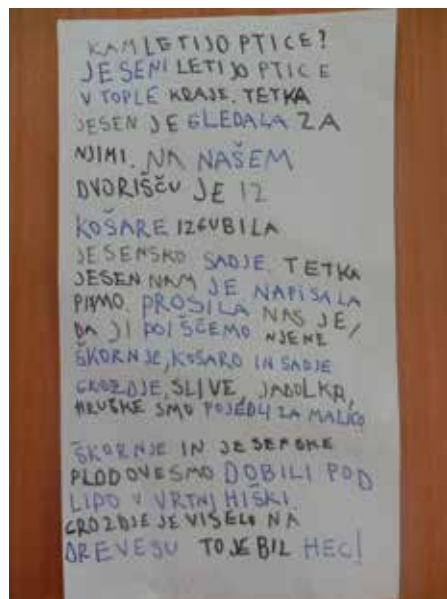 KAM LETIJO PTICE?
JESENI LETIJO PTICE
V TOPLE KRAJE. TETKA
JESEN JE GLEDALA ZA
NJIMI. NA NAŠEM
DVORIŠČU JE IZ
KOŠARE IZGUBILA
JESENSKO SADJE. TETKA
JESEN NAM JE NAPISALA
PISMO. PROSILA NAS JE,
DA JI POIŠČEMO NJENE
ŠKORNJE, KOŠARO IN SADJE
GROZDJE, SLIVE, JABOLKA,
HRUŠKE SMO POJEDLI ZA MALICO
ŠKORNJE IN JESENSKE
PLODOVE SMO DOBILI POD
LIPO V VRTNI HIŠKI
GROZDJE JE VISELO NA
DREVESU TO JE BIL HEC!